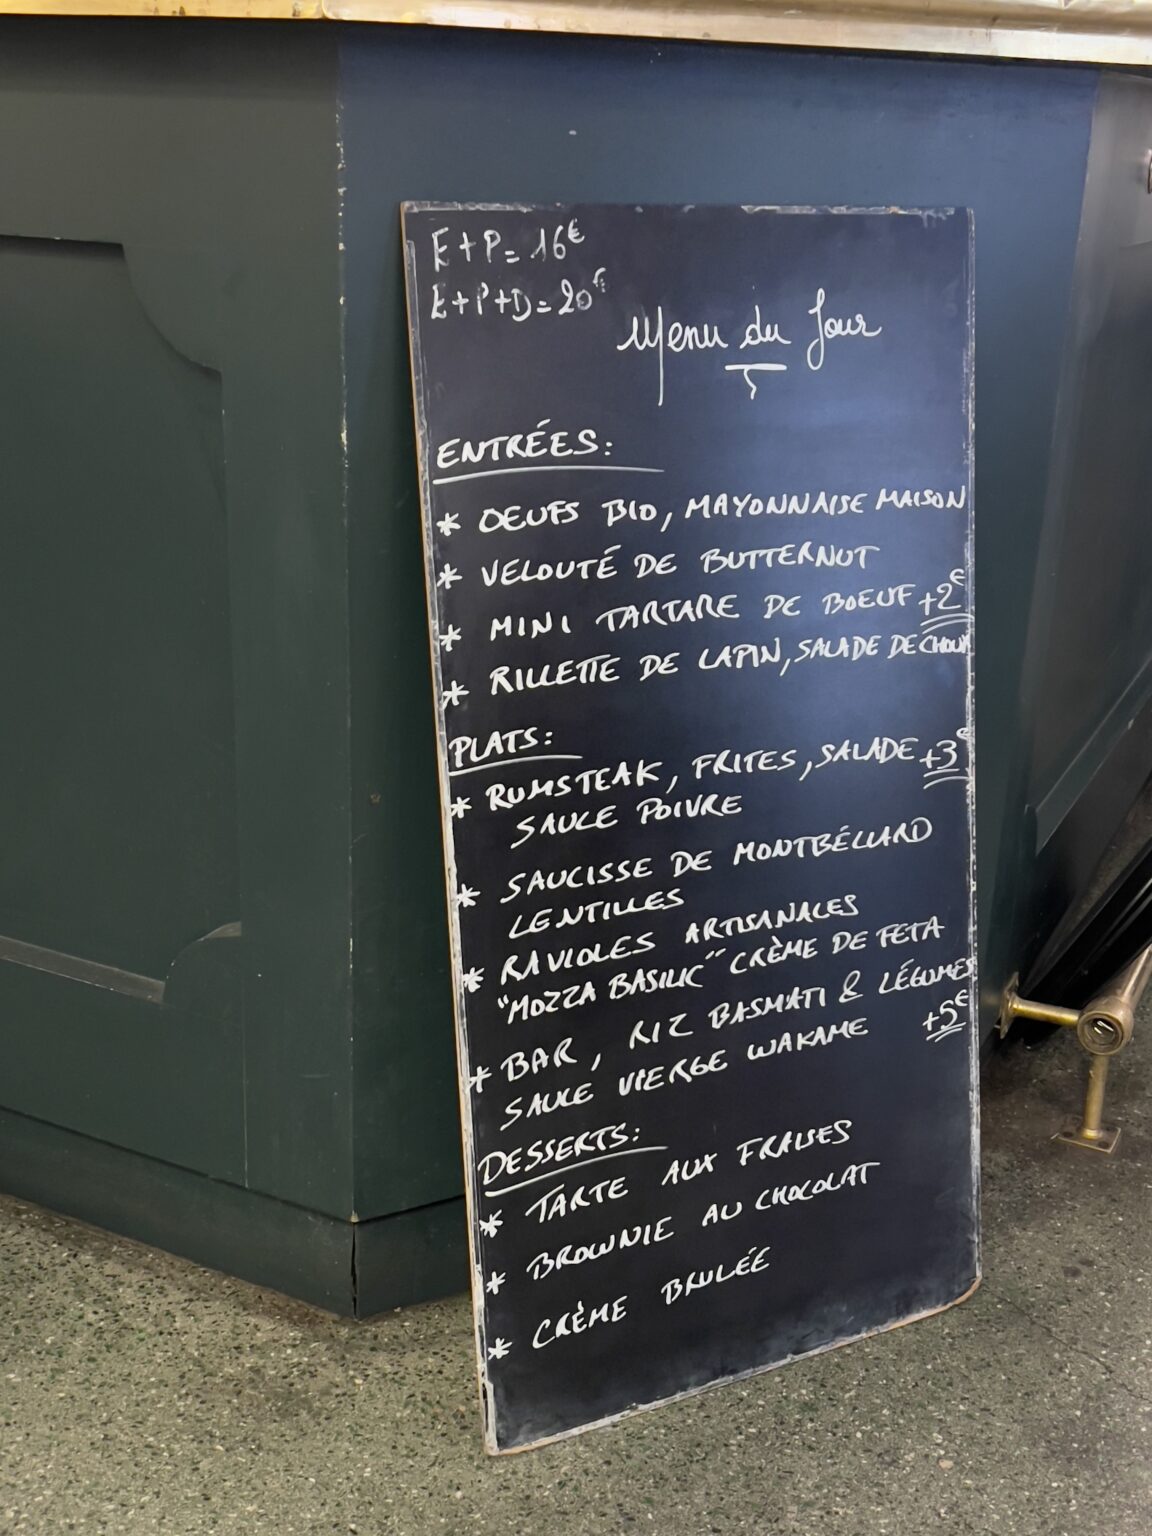 E+P=16€
E+P+D=20€
Menu du Jour
ENTRÉES:
* OEUFS BIO, MAYONNAISE MAISON
* VELOUTÉ DE BUTTERNUT
* MINI TARTARE DE BOEUF +2€
* RILLETTE DE LAPIN, SALADE DE CHOUX
PLATS:
* RUMSTEAK, FRITES, SALADE +3€
SAUCE POIVRE
* SAUCISSE DE MONTBÉLIARD
LENTILLES
* RAVIOLES ARTISANALES
"MOZZA BASILIC" CRÈME DE FETA
* BAR, RIZ BASMATI & LÉGUMES
SAUCE VIERGE WAKAME +5€
DESSERTS:
* TARTE AUX FRAISES
* BROWNIE AU CHOCOLAT
* CRÈME BRULÉE